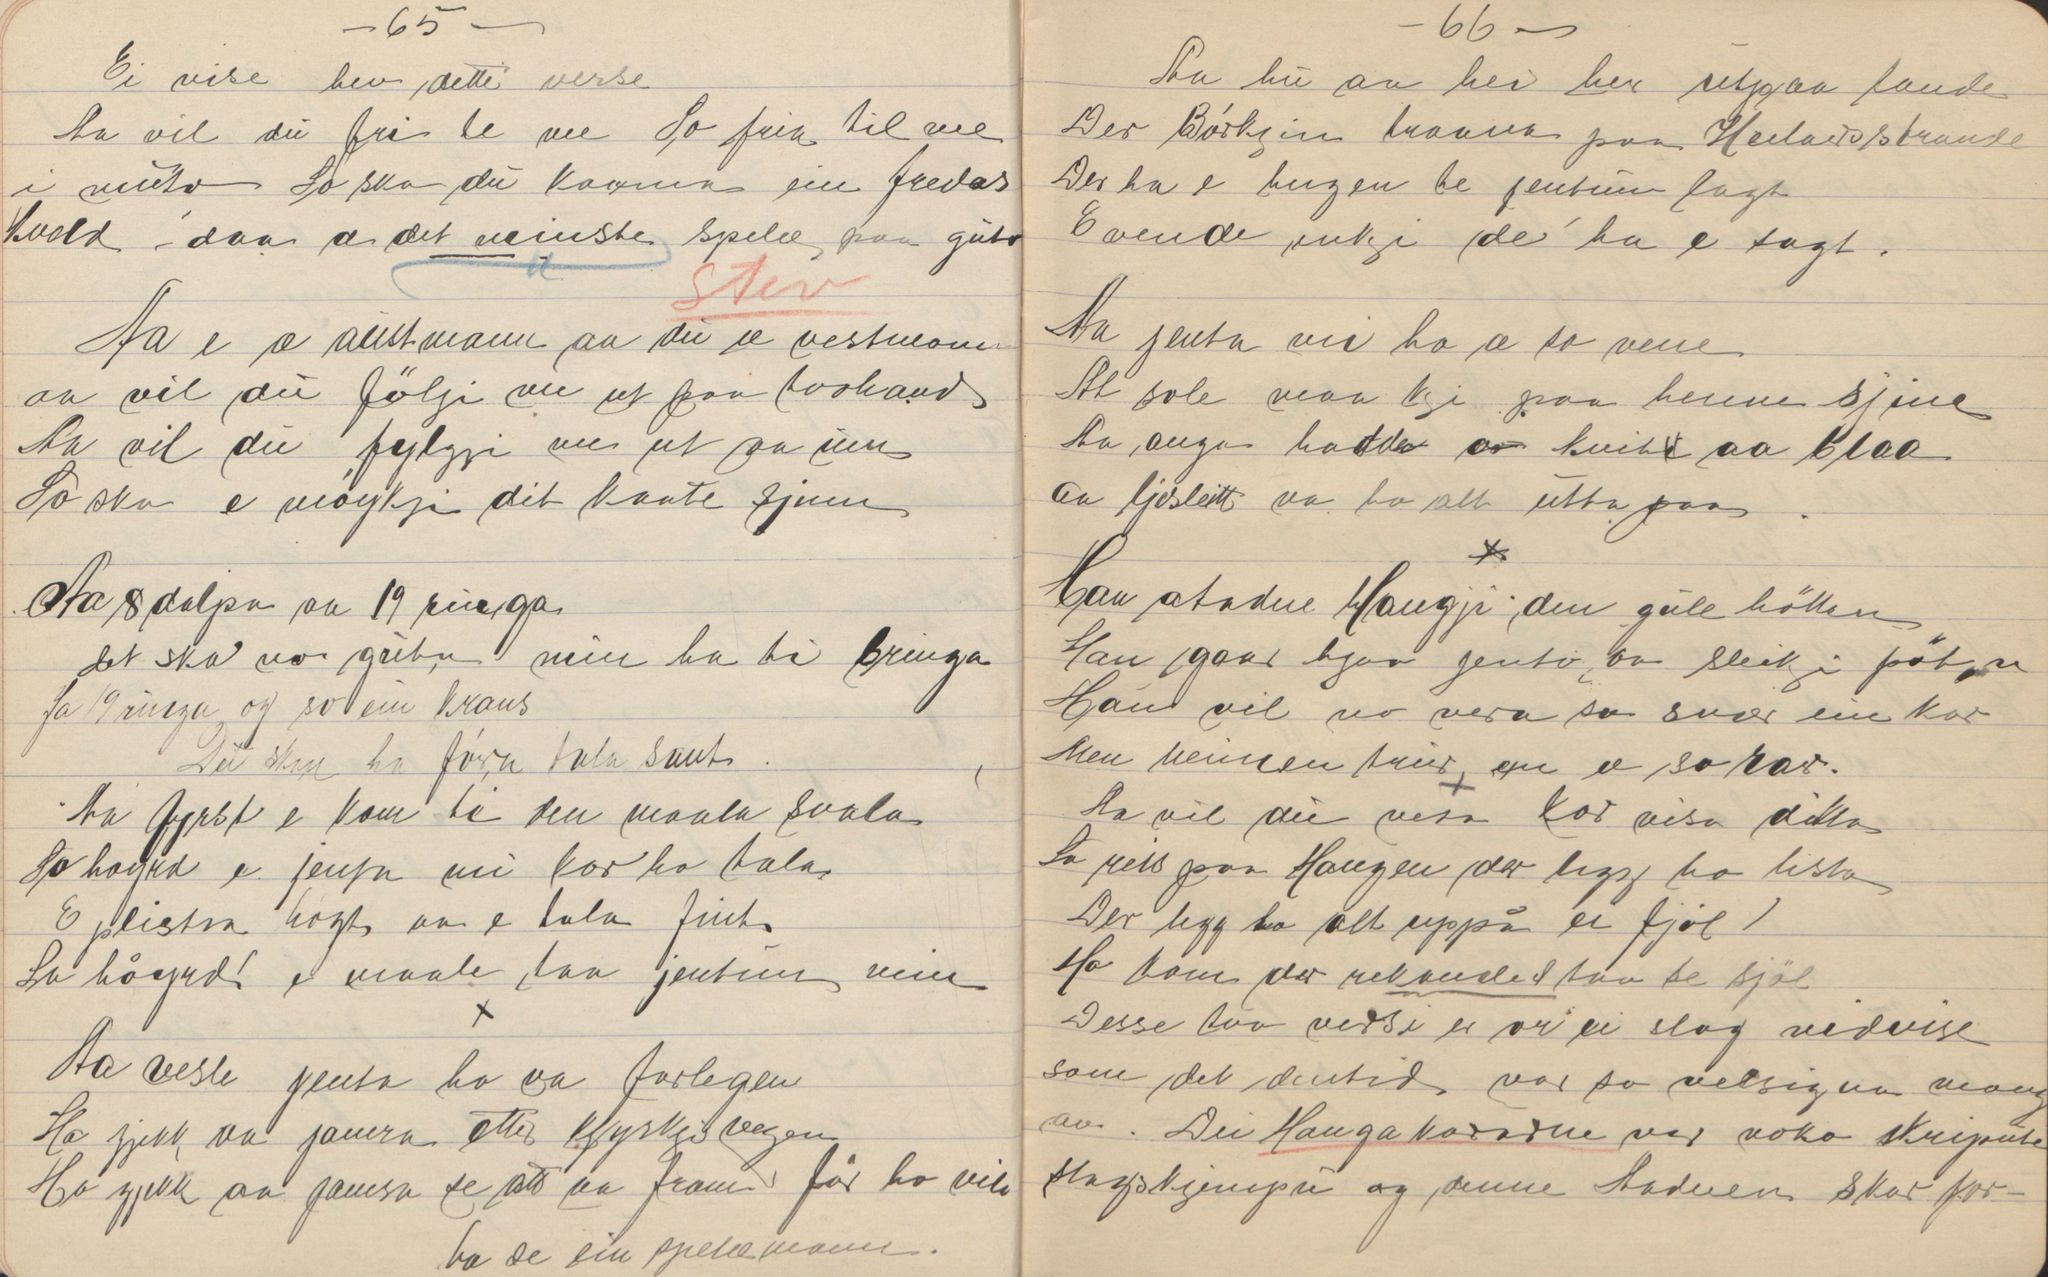 - 65 -
Ei vise hev dette verse
Aa vil du fri te me So fria til me
i nuto So ska du komma ein fredas
kveld - daa æ det meinste spele paa guto
Stev
Aa e æ austmann aa du æ vestmann
aa vil du fölgji me ut paa
Aa vil du fylgji me ut paa
So ska e möykji dit kaate sjinn
Aa 8 dalpa aa 19 ringa
det ska no guten min ha ti bringa
Ja 19 ringa og so ein krans
Du skal ha fóra tala sant.
Aa fyrst e kom ti den maala svala
So hoyrd e jenta mi kor ho tala
E plistra högt aa e tala fint
So høyrd' e maale taa jentun min
x
Aa vesle jenta ho va forlegen
Ho gjekk aa jamra etter kyrkjevegen
Ho gjekk aa jamra se att aa fram før ho vild
ha se ein spelemann.
- 66 -
Aa hu aa hei her utpaa lande
Der Börkjin traava paa
Der ha e hugen te jentun lagt
E vende inkji de' ha e sagt.
Aa jenta mi ho æ so vene
At sole maa kji paa henne sjine
Aa auga hadde kvite aa blaa
aa ljosleitt va ho alt utta paa.
x
Han stadne Haugji den gule hötten
Han gaar hjaa jento aa sleikji pöten
Han vil no vera so svær ein kar
Men heimen trur en e so rar.
x
Aa vil du veta kor visa ditta
So reis paa Haugen der ligg ho lista
Der ligg ho alt uppå ei fjöl
Ho kom der rekandes taa se sjöl
Desse tvo versi er or ei slag nidvise
som det dentid var so velsigna mang
av. Dei Haugakararne var noko
slagskjempur og denne Stadnen skar for-